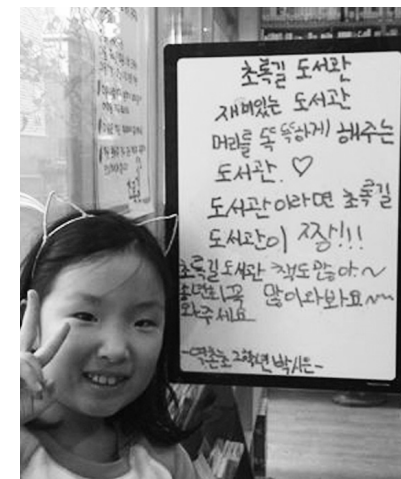 초록길 도서관
재미있는 도서관
머리를 똑똑하게 해주는
도서관. ♡
도서관이라면 초록길
도서관이 짱!!!
초록길도서관 책도많아~
꼭 많이와봐요~~
와주세요
-역촌초 2학년 박시은-